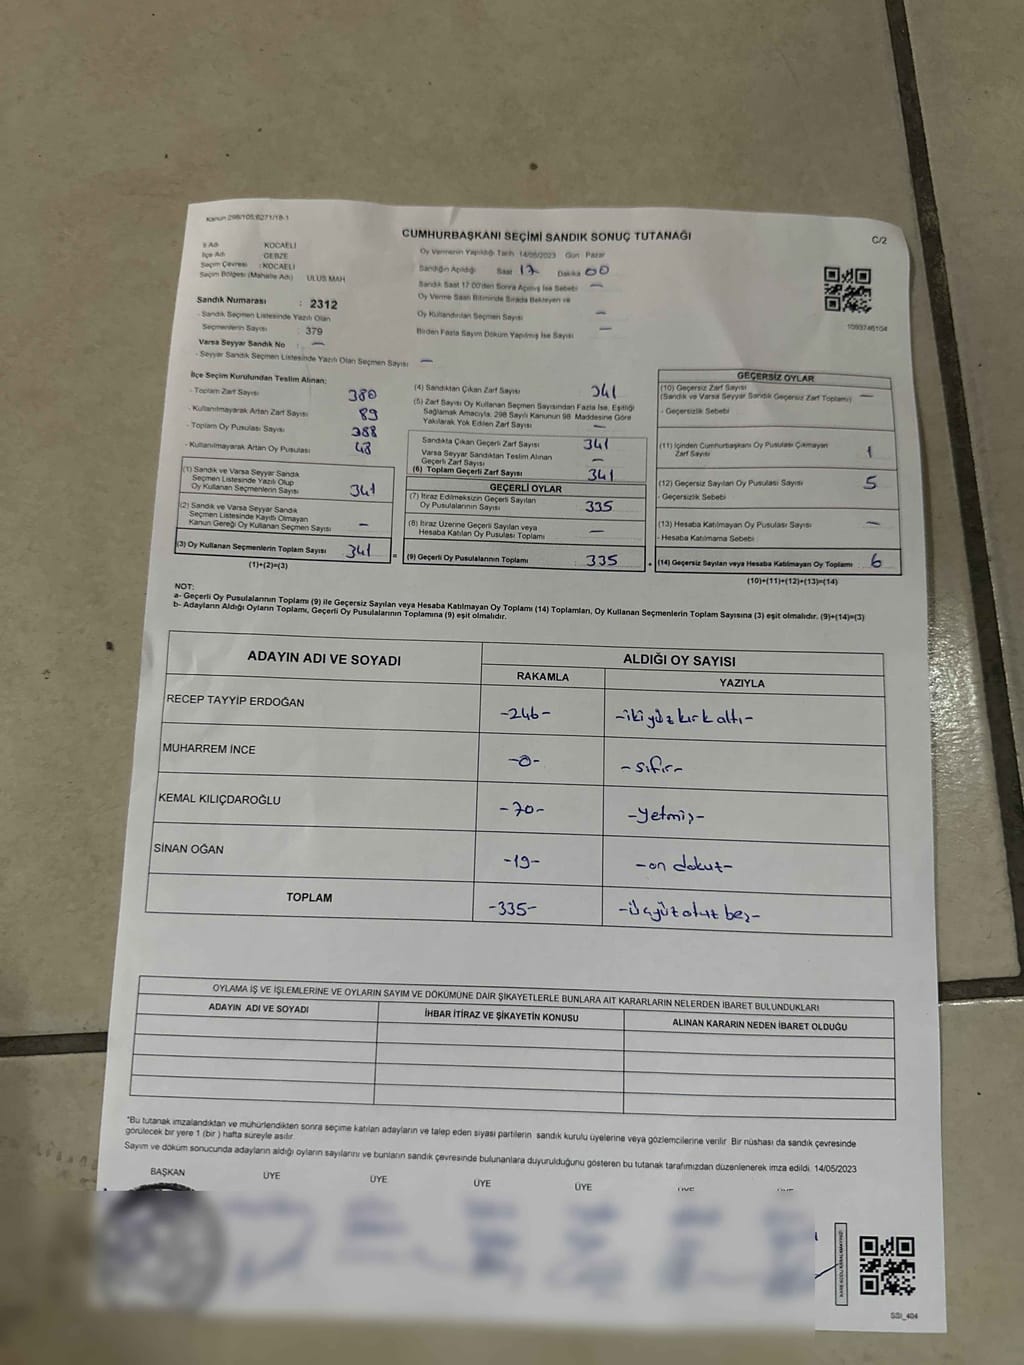 Kanun 298/105;6271/18-1
CUMHURBAŞKANI SEÇİMİ SANDIK SONUÇ TUTANAĞI
C/2
İl Adı KOCAELİ
İlçe Adı GEBZE
Seçim Çevresi : KOCAELİ
Seçim Bölgesi (Mahalle Adı) ULUS MAH
Sandık Numarası : 2312
- Sandık Seçmen Listesinde Yazılı Olan
Seçmenlerin Sayısı : 379
Varsa Seyyar Sandık No : —
- Seyyar Sandık Seçmen Listesinde Yazılı Olan Seçmen Sayısı —
Oy Vermenin Yapıldığı Tarih 14/05/2023 Gün Pazar
Sandığın Açıldığı Saat 17 Dakika 00
Sandık Saat 17.00'den Sonra Açılmış İse Sebebi —
Oy Verme Saati Bitiminde Sırada Bekleyen ve
Oy Kullandırılan Seçmen Sayısı —
Birden Fazla Sayım Döküm Yapılmış İse Sayısı —
1093746104
İlçe Seçim Kurulundan Teslim Alınan;
- Toplam Zarf Sayısı 380
- Kullanılmayarak Artan Zarf Sayısı 89
- Toplam Oy Pusulası Sayısı 388
- Kullanılmayarak Artan Oy Pusulası 48
(1) Sandık ve Varsa Seyyar Sandık
Seçmen Listesinde Yazılı Olup
Oy Kullanan Seçmenlerin Sayısı 341
(2) Sandık ve Varsa Seyyar Sandık
Seçmen Listesinde Kayıtlı Olmayan
Kanun Gereği Oy Kullanan Seçmen Sayısı —
(3) Oy Kullanan Seçmenlerin Toplam Sayısı 341
(1)+(2)=(3)
(4) Sandıktan Çıkan Zarf Sayısı 341
(5) Zarf Sayısı Oy Kullanan Seçmen Sayısından Fazla İse, Eşitliği
Sağlamak Amacıyla, 298 Sayılı Kanunun 98. Maddesine Göre
Yakılarak Yok Edilen Zarf Sayısı —
Sandıkta Çıkan Geçerli Zarf Sayısı 341
Varsa Seyyar Sandıktan Teslim Alınan
Geçerli Zarf Sayısı —
(6) Toplam Geçerli Zarf Sayısı 341
GEÇERLİ OYLAR
(7) İtiraz Edilmeksizin Geçerli Sayılan
Oy Pusulalarının Sayısı 335
(8) İtiraz Üzerine Geçerli Sayılan veya
Hesaba Katılan Oy Pusulası Toplamı —
= (9) Geçerli Oy Pusulalarının Toplamı 335 +
GEÇERSİZ OYLAR
(10) Geçersiz Zarf Sayısı —
(Sandık ve Varsa Seyyar Sandık Geçersiz Zarf Toplamı)
- Geçersizlik Sebebi
(11) İçinden Cumhurbaşkanı Oy Pusulası Çıkmayan
Zarf Sayısı 1
(12) Geçersiz Sayılan Oy Pusulası Sayısı 5
- Geçersizlik Sebebi
(13) Hesaba Katılmayan Oy Pusulası Sayısı —
- Hesaba Katılmama Sebebi
(14) Geçersiz Sayılan veya Hesaba Katılmayan Oy Toplamı 6
(10)+(11)+(12)+(13)=(14)
NOT:
a- Geçerli Oy Pusulalarının Toplamı (9) ile Geçersiz Sayılan veya Hesaba Katılmayan Oy Toplamı (14) Toplamları, Oy Kullanan Seçmenlerin Toplam Sayısına (3) eşit olmalıdır. (9)+(14)=(3)
b- Adayların Aldığı Oyların Toplamı, Geçerli Oy Pusulalarının Toplamına (9) eşit olmalıdır.
ADAYIN ADI VE SOYADI ALDIĞI OY SAYISI
RAKAMLA YAZIYLA
RECEP TAYYİP ERDOĞAN -246- -iki yüz kırk altı-
MUHARREM İNCE -0- -sıfır-
KEMAL KILIÇDAROĞLU -70- -yetmiş-
SİNAN OĞAN -19- -on dokuz-
TOPLAM -335- -üçyüz otuz beş-
OYLAMA İŞ VE İŞLEMLERİNE VE OYLARIN SAYIM VE DÖKÜMÜNE DAİR ŞİKAYETLERLE BUNLARA AİT KARARLARIN NELERDEN İBARET BULUNDUKLARI
ADAYIN ADI VE SOYADI İHBAR İTİRAZ VE ŞİKAYETİN KONUSU ALINAN KARARIN NEDEN İBARET OLDUĞU
*Bu tutanak imzalandıktan ve mühürlendikten sonra seçime katılan adayların ve talep eden siyasi partilerin sandık kurulu üyelerine veya gözlemcilerine verilir. Bir nüshası da sandık çevresinde
görülecek bir yere 1 (bir) hafta süreyle asılır.
Sayım ve döküm sonucunda adayların aldığı oyların sayılarını ve bunların sandık çevresinde bulunanlara duyurulduğunu gösteren bu tutanak tarafımızdan düzenlenerek imza edildi. 14/05/2023
BAŞKAN ÜYE ÜYE ÜYE ÜYE ÜYE ÜYE
SSI_404